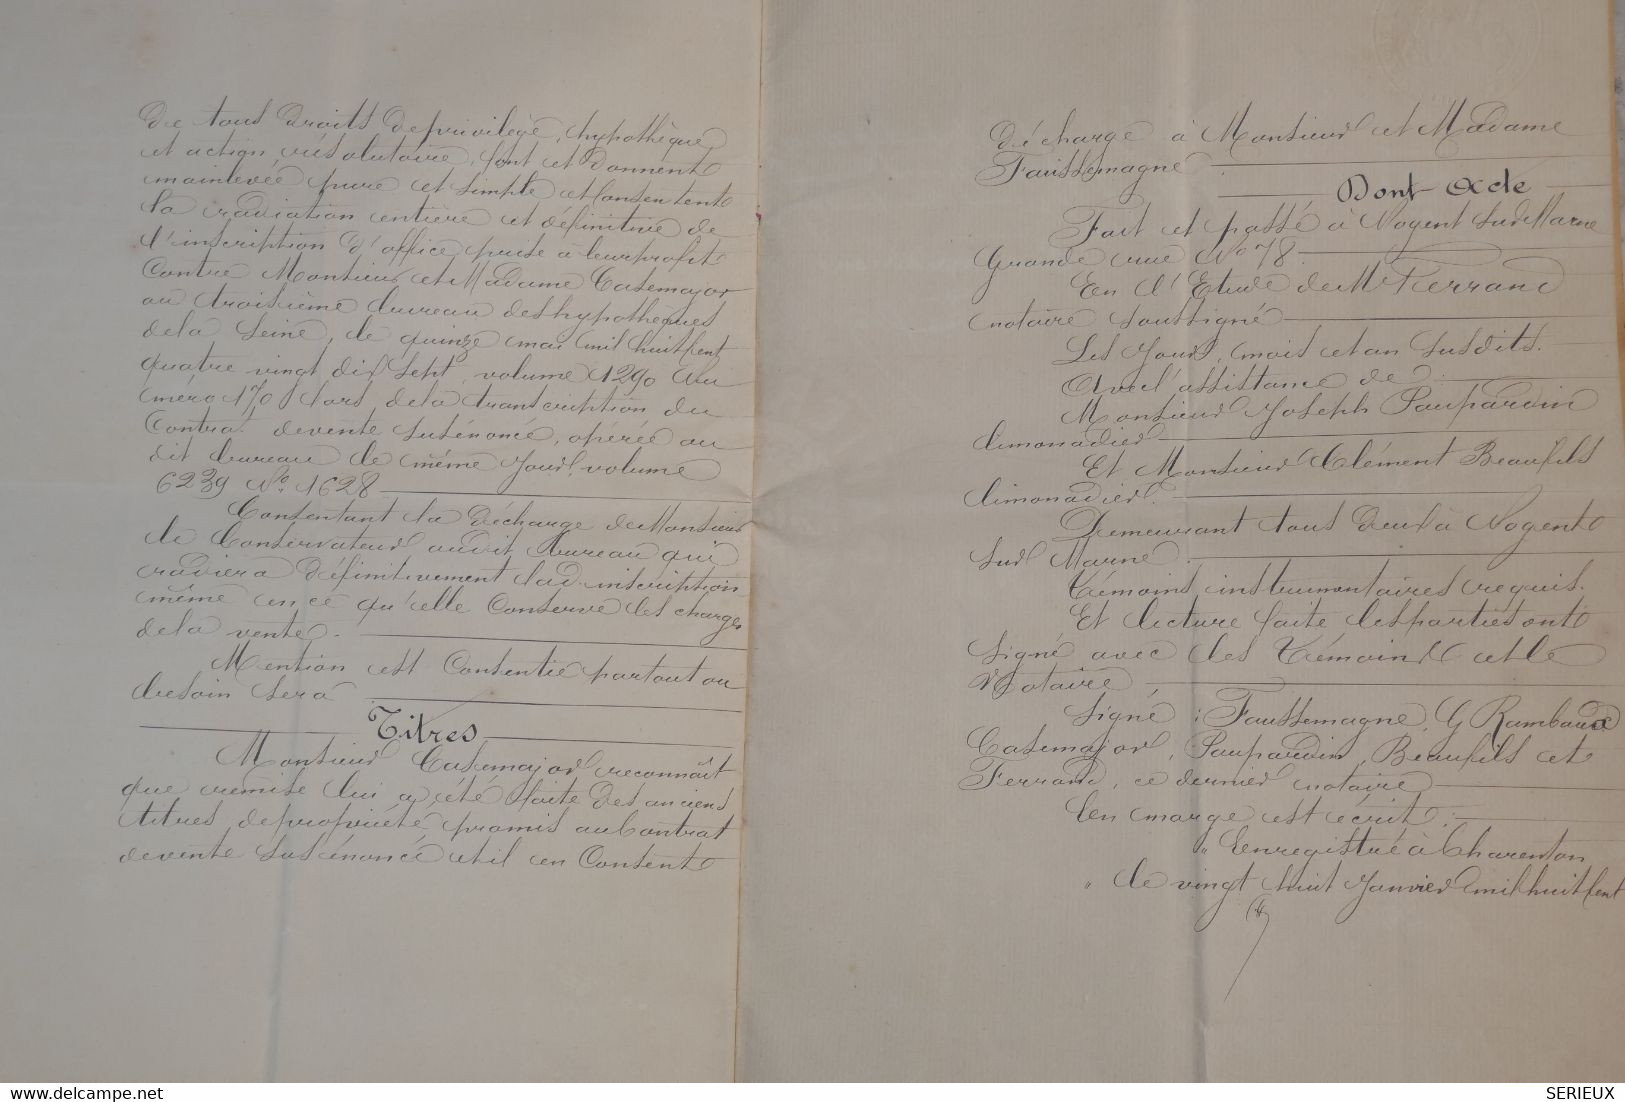 de tous droits de privilège, hypothèque
et action résolutoire, font et donnent
mainlevée pure et simple et consentent
la radiation entière et définitive de
l'inscription d'office prise à leur profit
Contre Monsieur et Madame Casemajor
au troisième bureau des hypothèques
de la Seine, le quinze mai mil huit cent
quatre vingt dix sept, volume 1290 nu
méro 170 lors de la transcription du
Contrat de vente susénoncé, opérée au
dit bureau le même jour, volume
6239 No. 1628
Consentant la décharge de Monsieur
le Conservateur audit bureau qui
radiera définitivement lad. inscription
même en ce qu'elle Conserve les charges
de la vente.
Mention est Consentie partout ou
besoin sera
Titres
Monsieur Casemajor reconnaît
que remise lui a été faite des anciens
titres de propriété promis au Contrat
de vente susénoncé et il en Consent
décharge à Monsieur et Madame
Faussemagne
Dont Acte
Fait et passé à Nogent sur Marne
Grande rue No 78.
En l'Etude de Me Ferrand
notaire soussigné
Les Jour, mois et an susdits.
Avec l'assistance de
Monsieur Joseph Poupardin
limonadier
Et Monsieur Clément Beaufils
limonadier.
Demeurant tous deux à Nogent
sur Marne
Témoins instrumentaires requis.
Et lecture faite les parties ont
Signé avec les Témoins et le
Notaire
Signé : Faussemagne, G Rambaux
Casemajor, Poupardin, Beaufils et
Ferrand, ce dernier notaire
En marge est écrit :
" Enregistré à Charenton
" le vingt huit Janvier mil huit cent
SERIEUX
www.delcampe.net